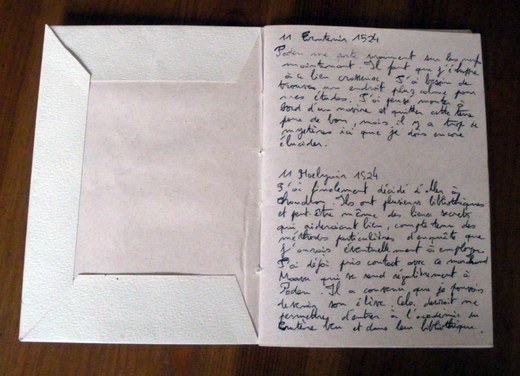 11 1524
me porte vraiment sur les nerfs
maintenant. Il faut que j'échappe
à ce lien J'ai besoin de
trouver un endroit plus calme pour
mes études. J'ai pensé monter à
bord d'un navire et quitter cette terre
pour de bon, mais il y a trop de
mystères ici que je dois encore
élucider.
11 1524
J'ai finalement décidé d'aller à
Ils ont plusieurs bibliothèques
et peut-être même des lieux secrets
qui aideraient bien, compte tenu des
méthodes particulières d'enquête que
j'aurais éventuellement à employer.
J'ai déjà pris contact avec ce marchand
qui se rend régulièrement à
Il a convenu que je pouvais
devenir son élève. Cela devrait me
permettre d'entrer à l'académie du
et dans leur bibliothèque.